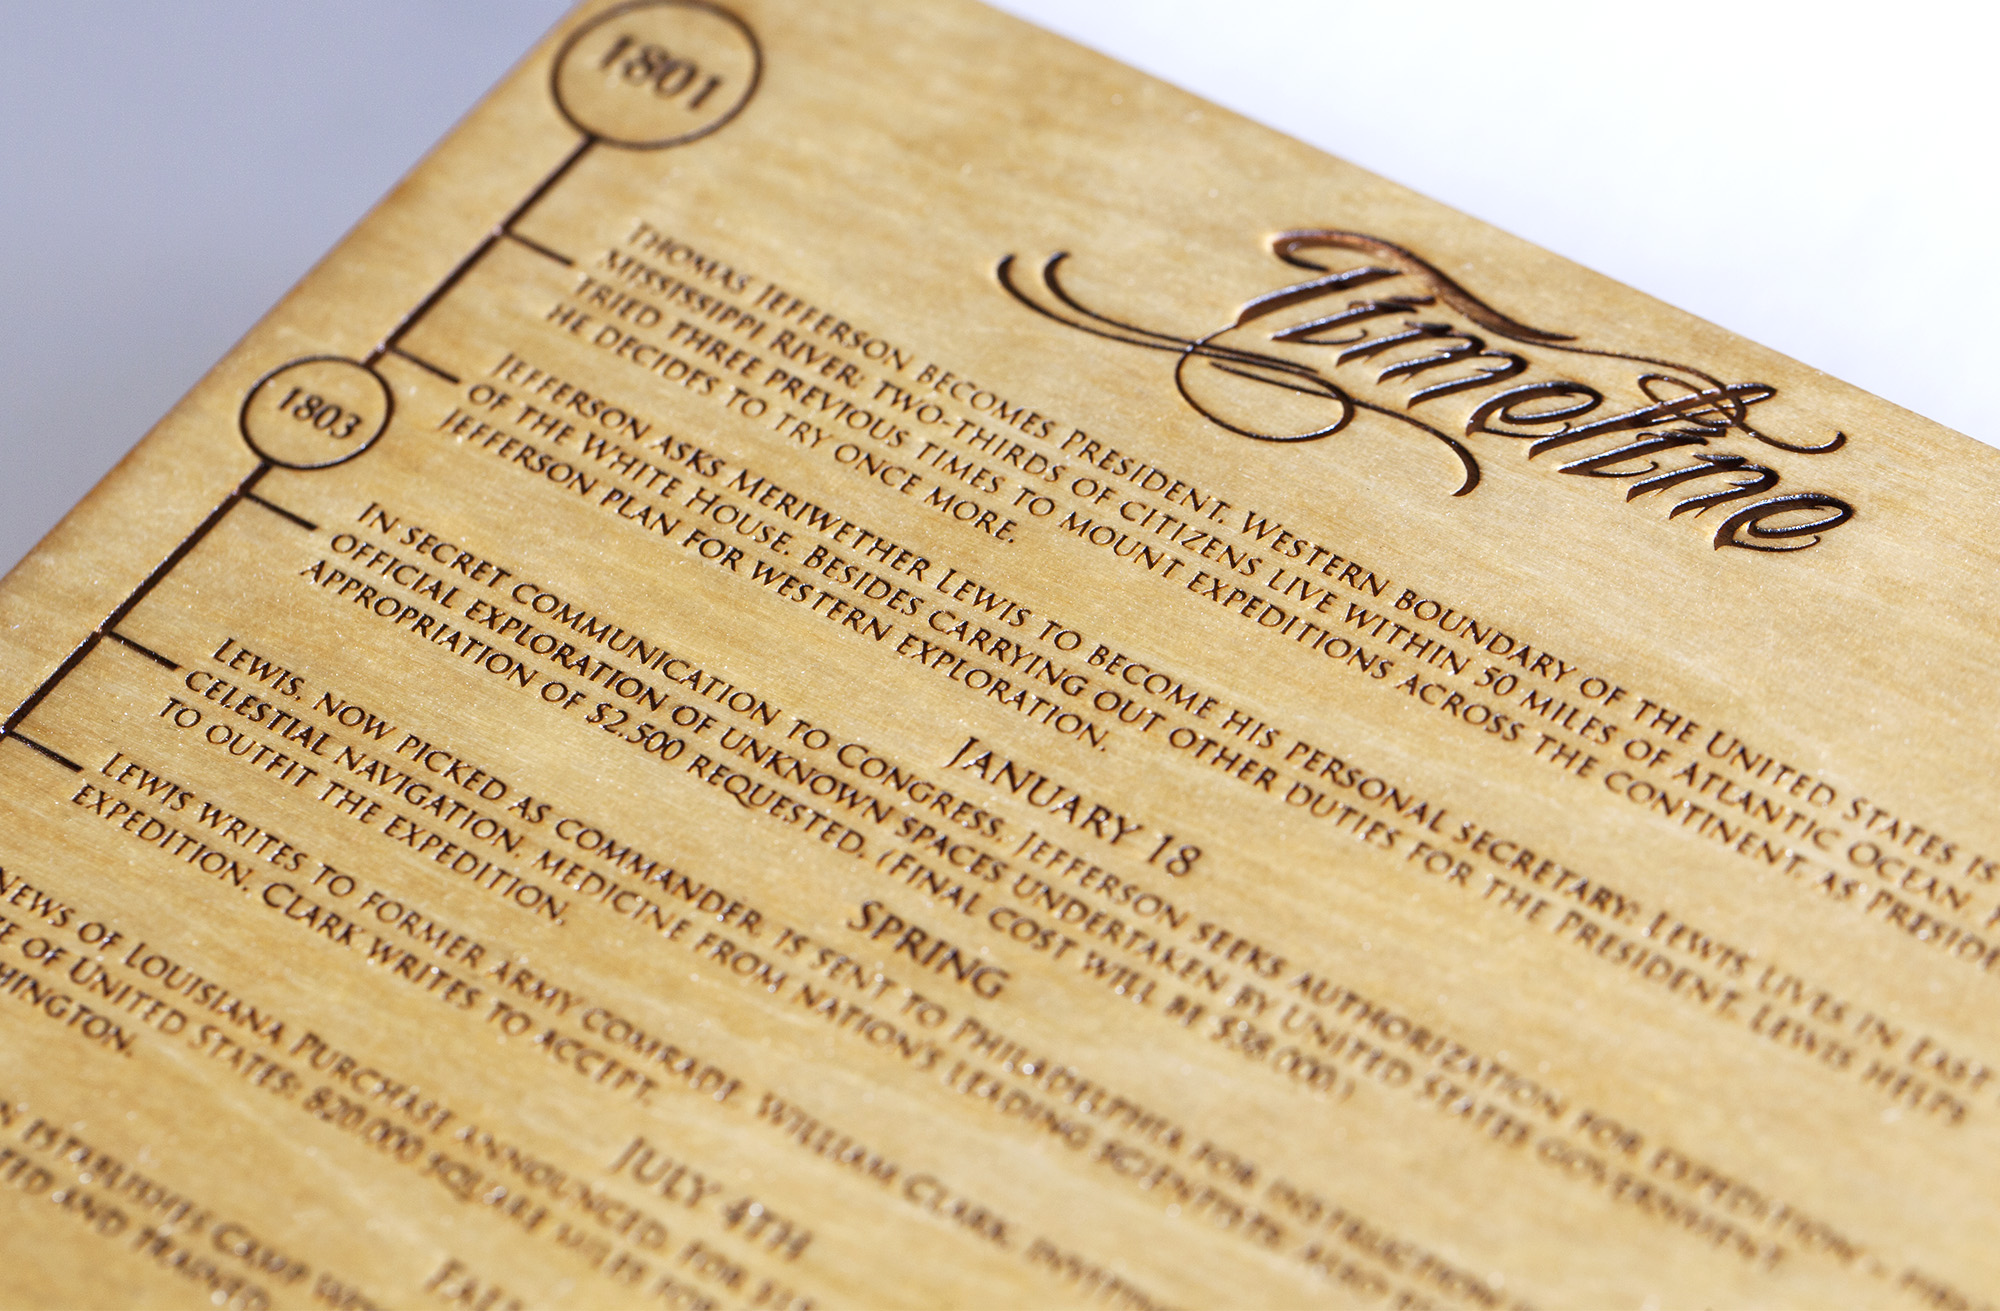 Timeline
1801
THOMAS JEFFERSON BECOMES PRESIDENT. WESTERN BOUNDARY OF THE UNITED STATES IS
MISSISSIPPI RIVER; TWO-THIRDS OF CITIZENS LIVE WITHIN 50 MILES OF ATLANTIC OCEAN.
TRIED THREE PREVIOUS TIMES TO MOUNT EXPEDITIONS ACROSS THE CONTINENT. AS PRESIDE
HE DECIDES TO TRY ONCE MORE.
JEFFERSON ASKS MERIWETHER LEWIS TO BECOME HIS PERSONAL SECRETARY; LEWIS LIVES IN EAST
OF THE WHITE HOUSE. BESIDES CARRYING OUT OTHER DUTIES FOR THE PRESIDENT, LEWIS HELPS
JEFFERSON PLAN FOR WESTERN EXPLORATION.
1803
JANUARY 18
IN SECRET COMMUNICATION TO CONGRESS, JEFFERSON SEEKS AUTHORIZATION FOR EXPEDITION -
OFFICIAL EXPLORATION OF UNKNOWN SPACES UNDERTAKEN BY UNITED STATES GOVERNMENT.
APPROPRIATION OF $2,500 REQUESTED. (FINAL COST WILL BE $38,000.)
SPRING
LEWIS, NOW PICKED AS COMMANDER, IS SENT TO PHILADELPHIA FOR INSTRUCTION
CELESTIAL NAVIGATION, MEDICINE FROM NATION'S LEADING SCIENTISTS. ALSO
TO OUTFIT THE EXPEDITION.
LEWIS WRITES TO FORMER ARMY COMRADE, WILLIAM CLARK,
EXPEDITION. CLARK WRITES TO ACCEPT.
JULY 4TH
NEWS OF LOUISIANA PURCHASE ANNOUNCED. FOR
E OF UNITED STATES; 820,000 SQUARE MILES FOR
HINGTON.
FAL
N ESTABLISHES CAMP
TED AND TRAINED